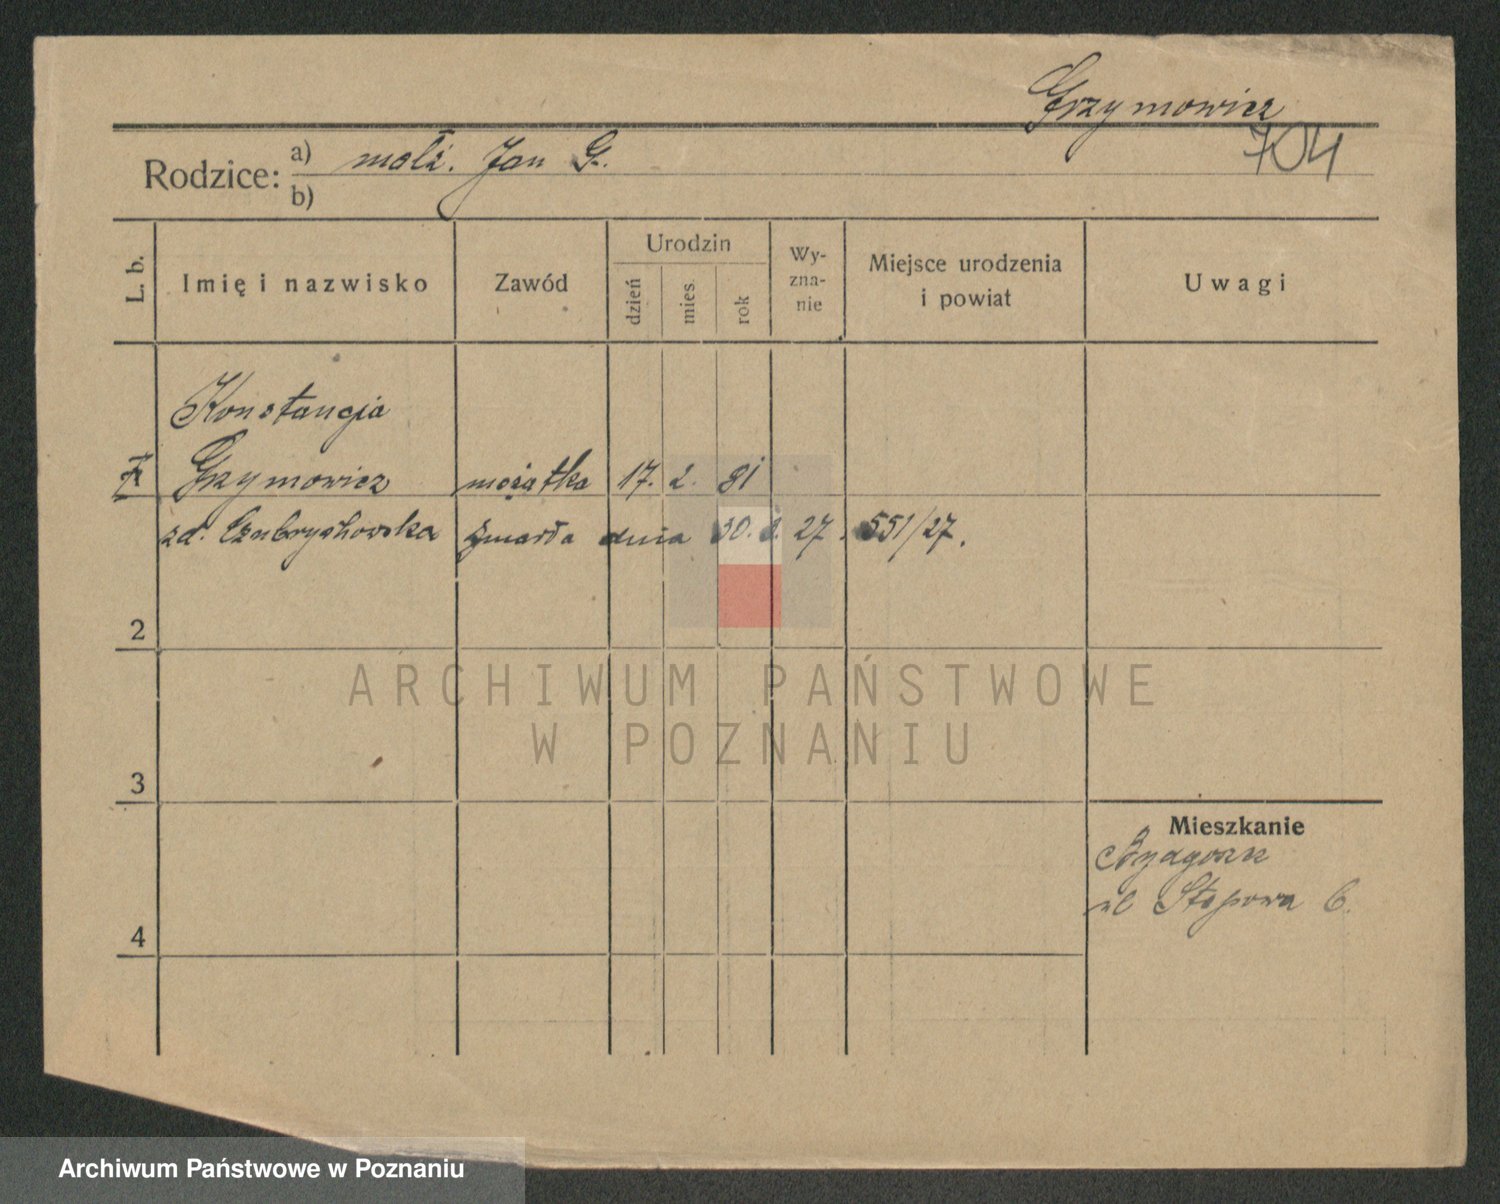 Grzymowicz
704
Rodzice: a) małż. Jan G.
b)
L. b. Imię i nazwisko Zawód Urodzin dzień mies. rok Wy-zna-nie Miejsce urodzenia i powiat Uwagi
Konstancja
1 Grzymowicz mężatka 17. 2. 81
zd. zmarła dnia 30. 27. 551/27.
2
ARCHIWUM PAŃSTWOWE
W POZNANIU
3
Mieszkanie
Bydgoszcz
ul 6.
4
Archiwum Państwowe w Poznaniu